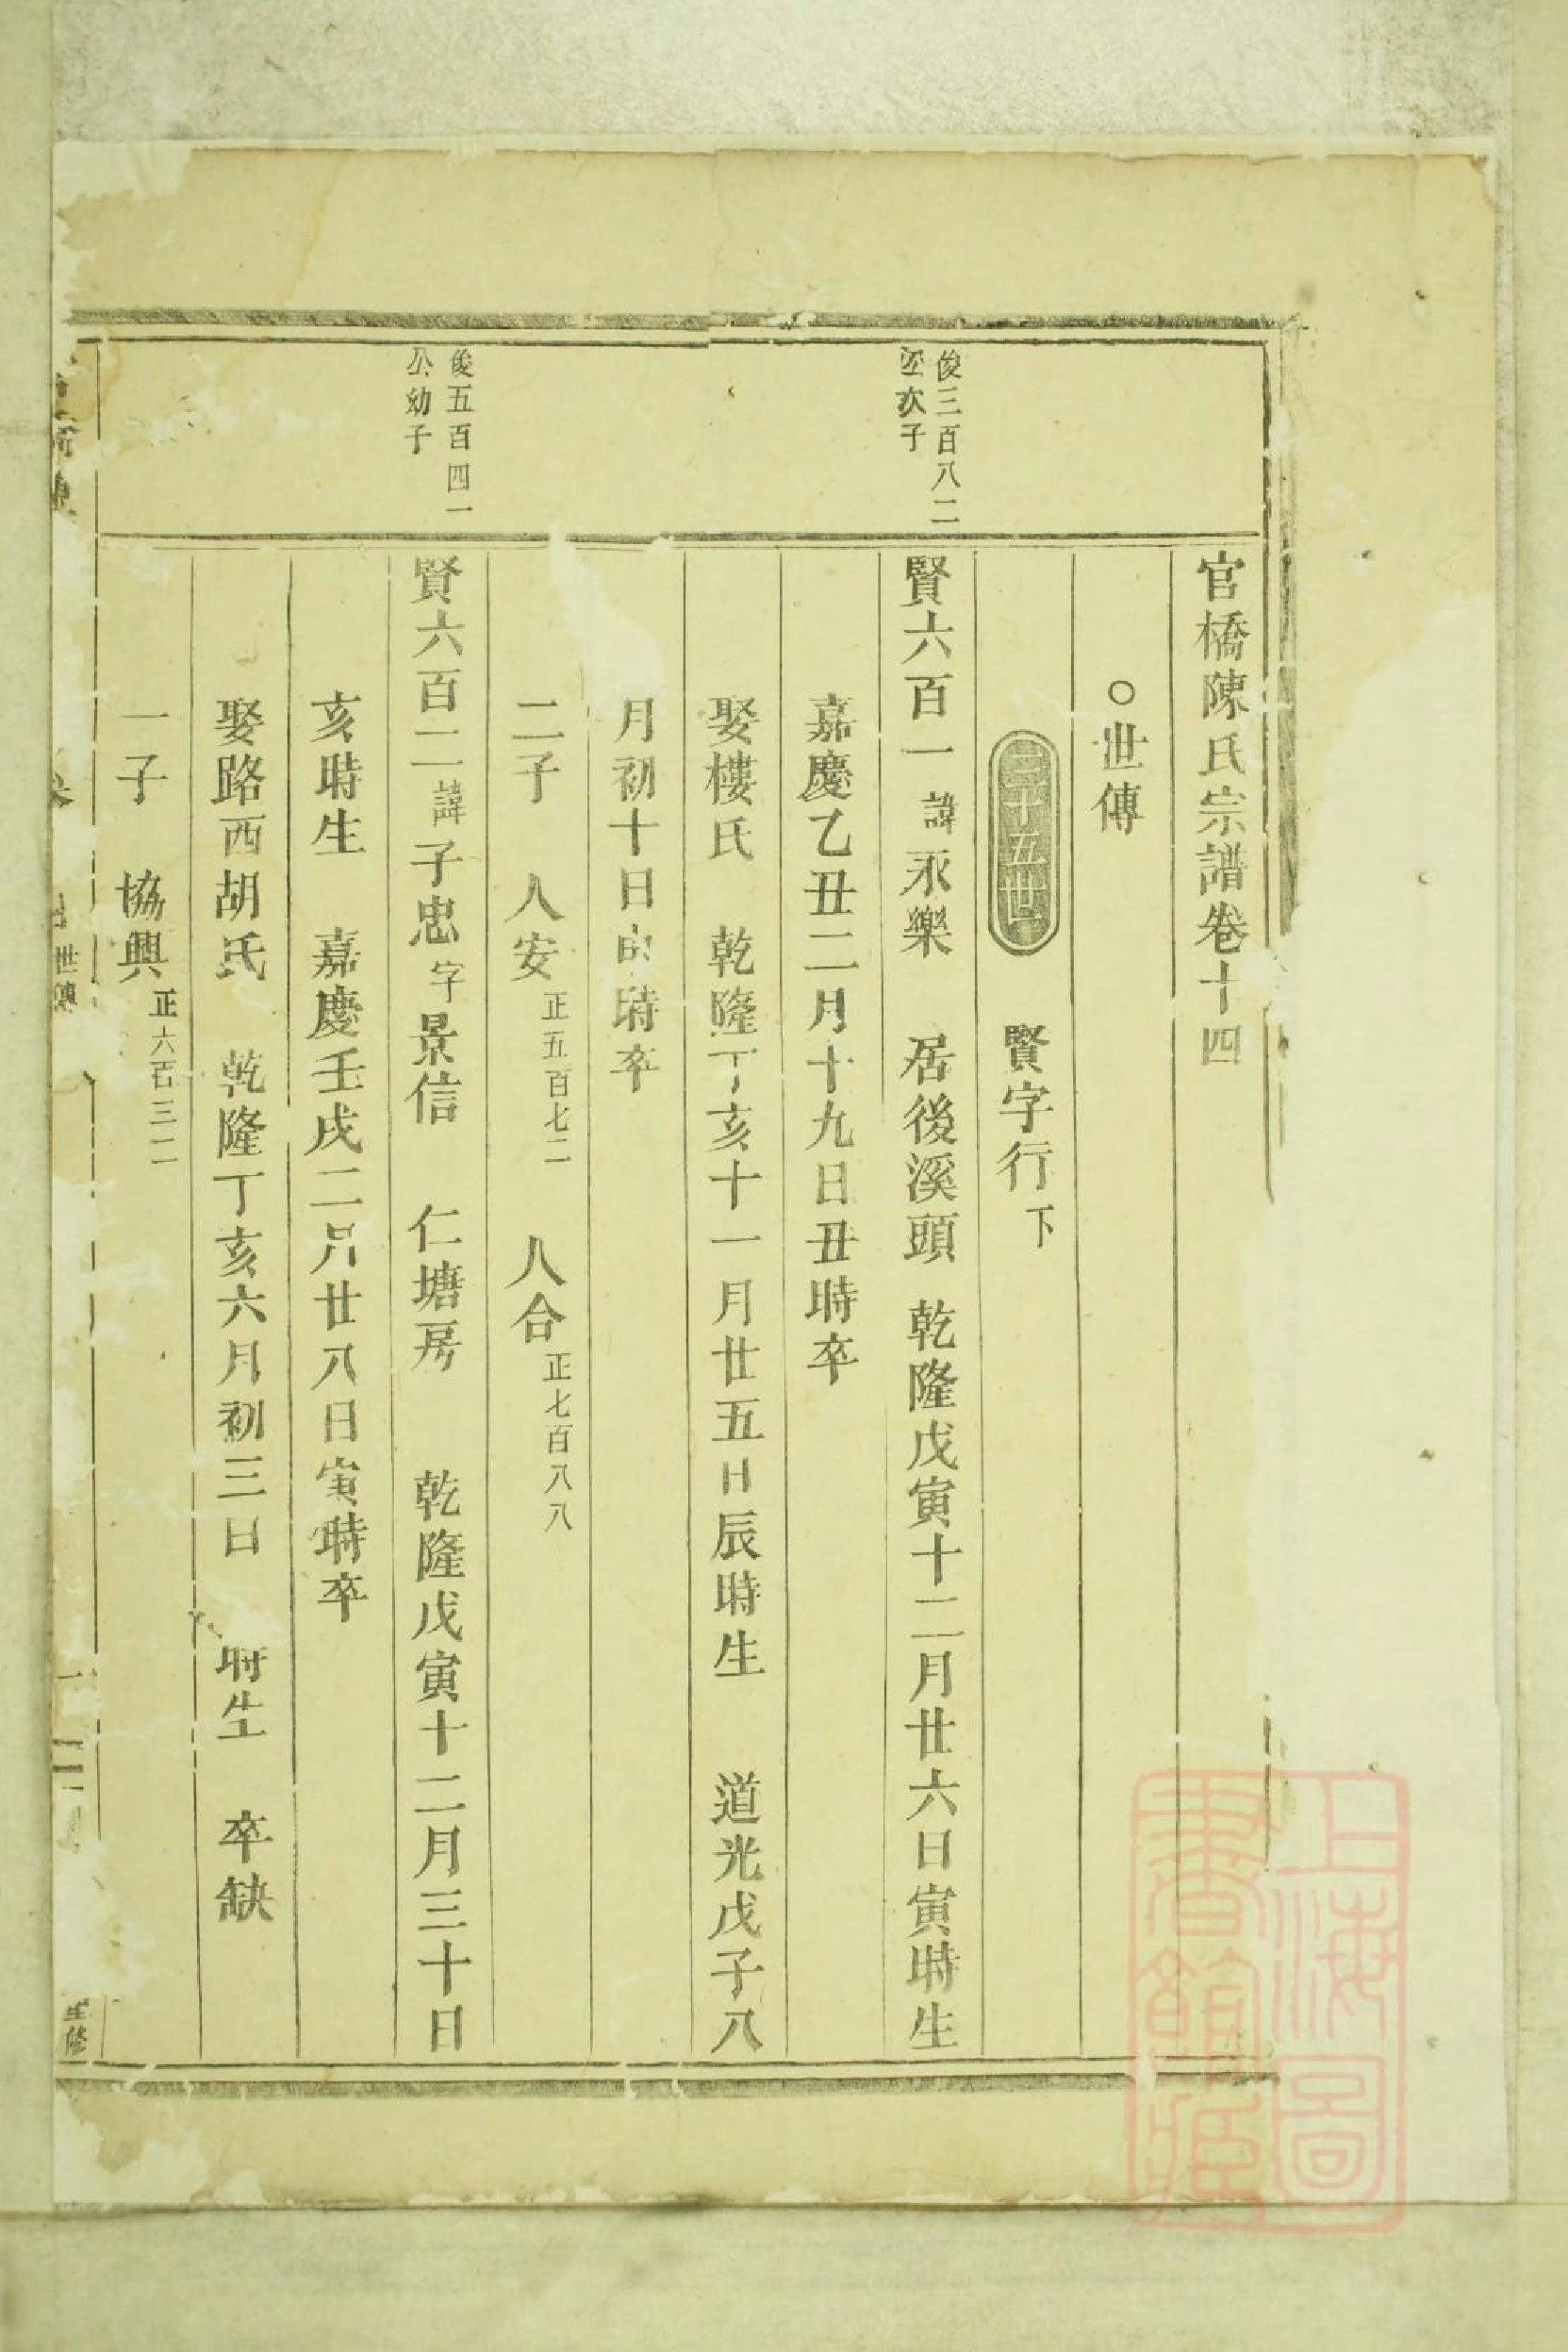 官橋陳氏宗譜卷十四
○世傳
二十五世 賢字行下
俊三百八二
公次子
賢六百一 諱永樂 居後溪頭 乾隆戊寅十二月廿六日寅時生
嘉慶乙丑二月十九日丑時卒
娶樓氏 乾隆丁亥十一月廿五日辰時生 道光戊子八
月初十日 時卒
二子 人安正五百七二 人合正七百八八
俊五百四一
公幼子
賢六百二諱子忠字景信 仁塘房 乾隆戊寅十二月三十日
亥時生 嘉慶壬戌二月廿八日寅時卒
娶路西胡氏 乾隆丁亥六月初三日 時生 卒缺
一子 協興正六百三二
世傳
上海圖
書館藏